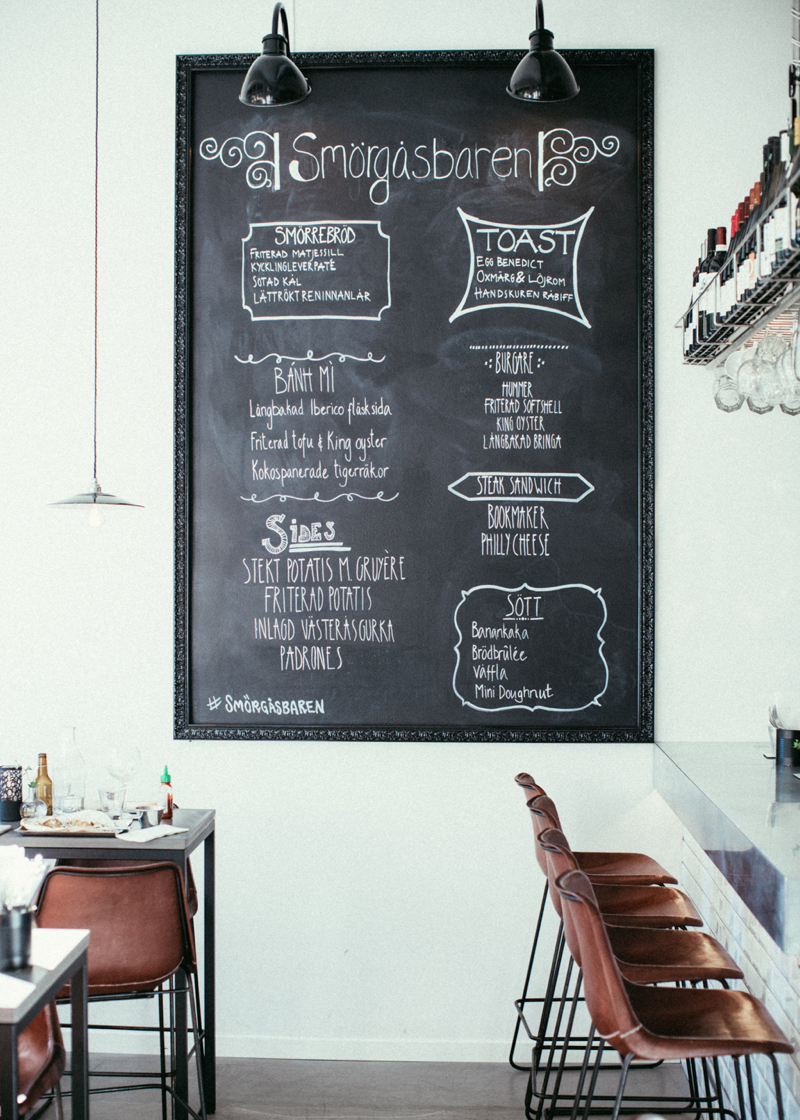 Smörgåsbaren
SMÖRREBRÖD
FRITERAD MATJESSILL
KYCKLINGLEVERPATÉ
SOTAD KÅL
LÄTTRÖKT RENINNANLÅR
BÁNH MÌ
Långbakad Iberico fläsksida
Friterad tofu & King oyster
Kokospanerade tigerräkor
SIDES
STEKT POTATIS M. GRUYÈRE
FRITERAD POTATIS
INLAGD VÄSTERÅSGURKA
PADRONES
#SMÖRGÅSBAREN
TOAST
EGG BENEDICT
OXMÄRG & LÖJROM
HANDSKUREN RÅBIFF
BURGARE
HUMMER
FRITERAD SOFTSHELL
KING OYSTER
LÅNGBAKAD BRINGA
STEAK SANDWICH
BOOKMAKER
PHILLY CHEESE
SÖTT
Banankaka
Brödbrûlée
Våffla
Mini Doughnut